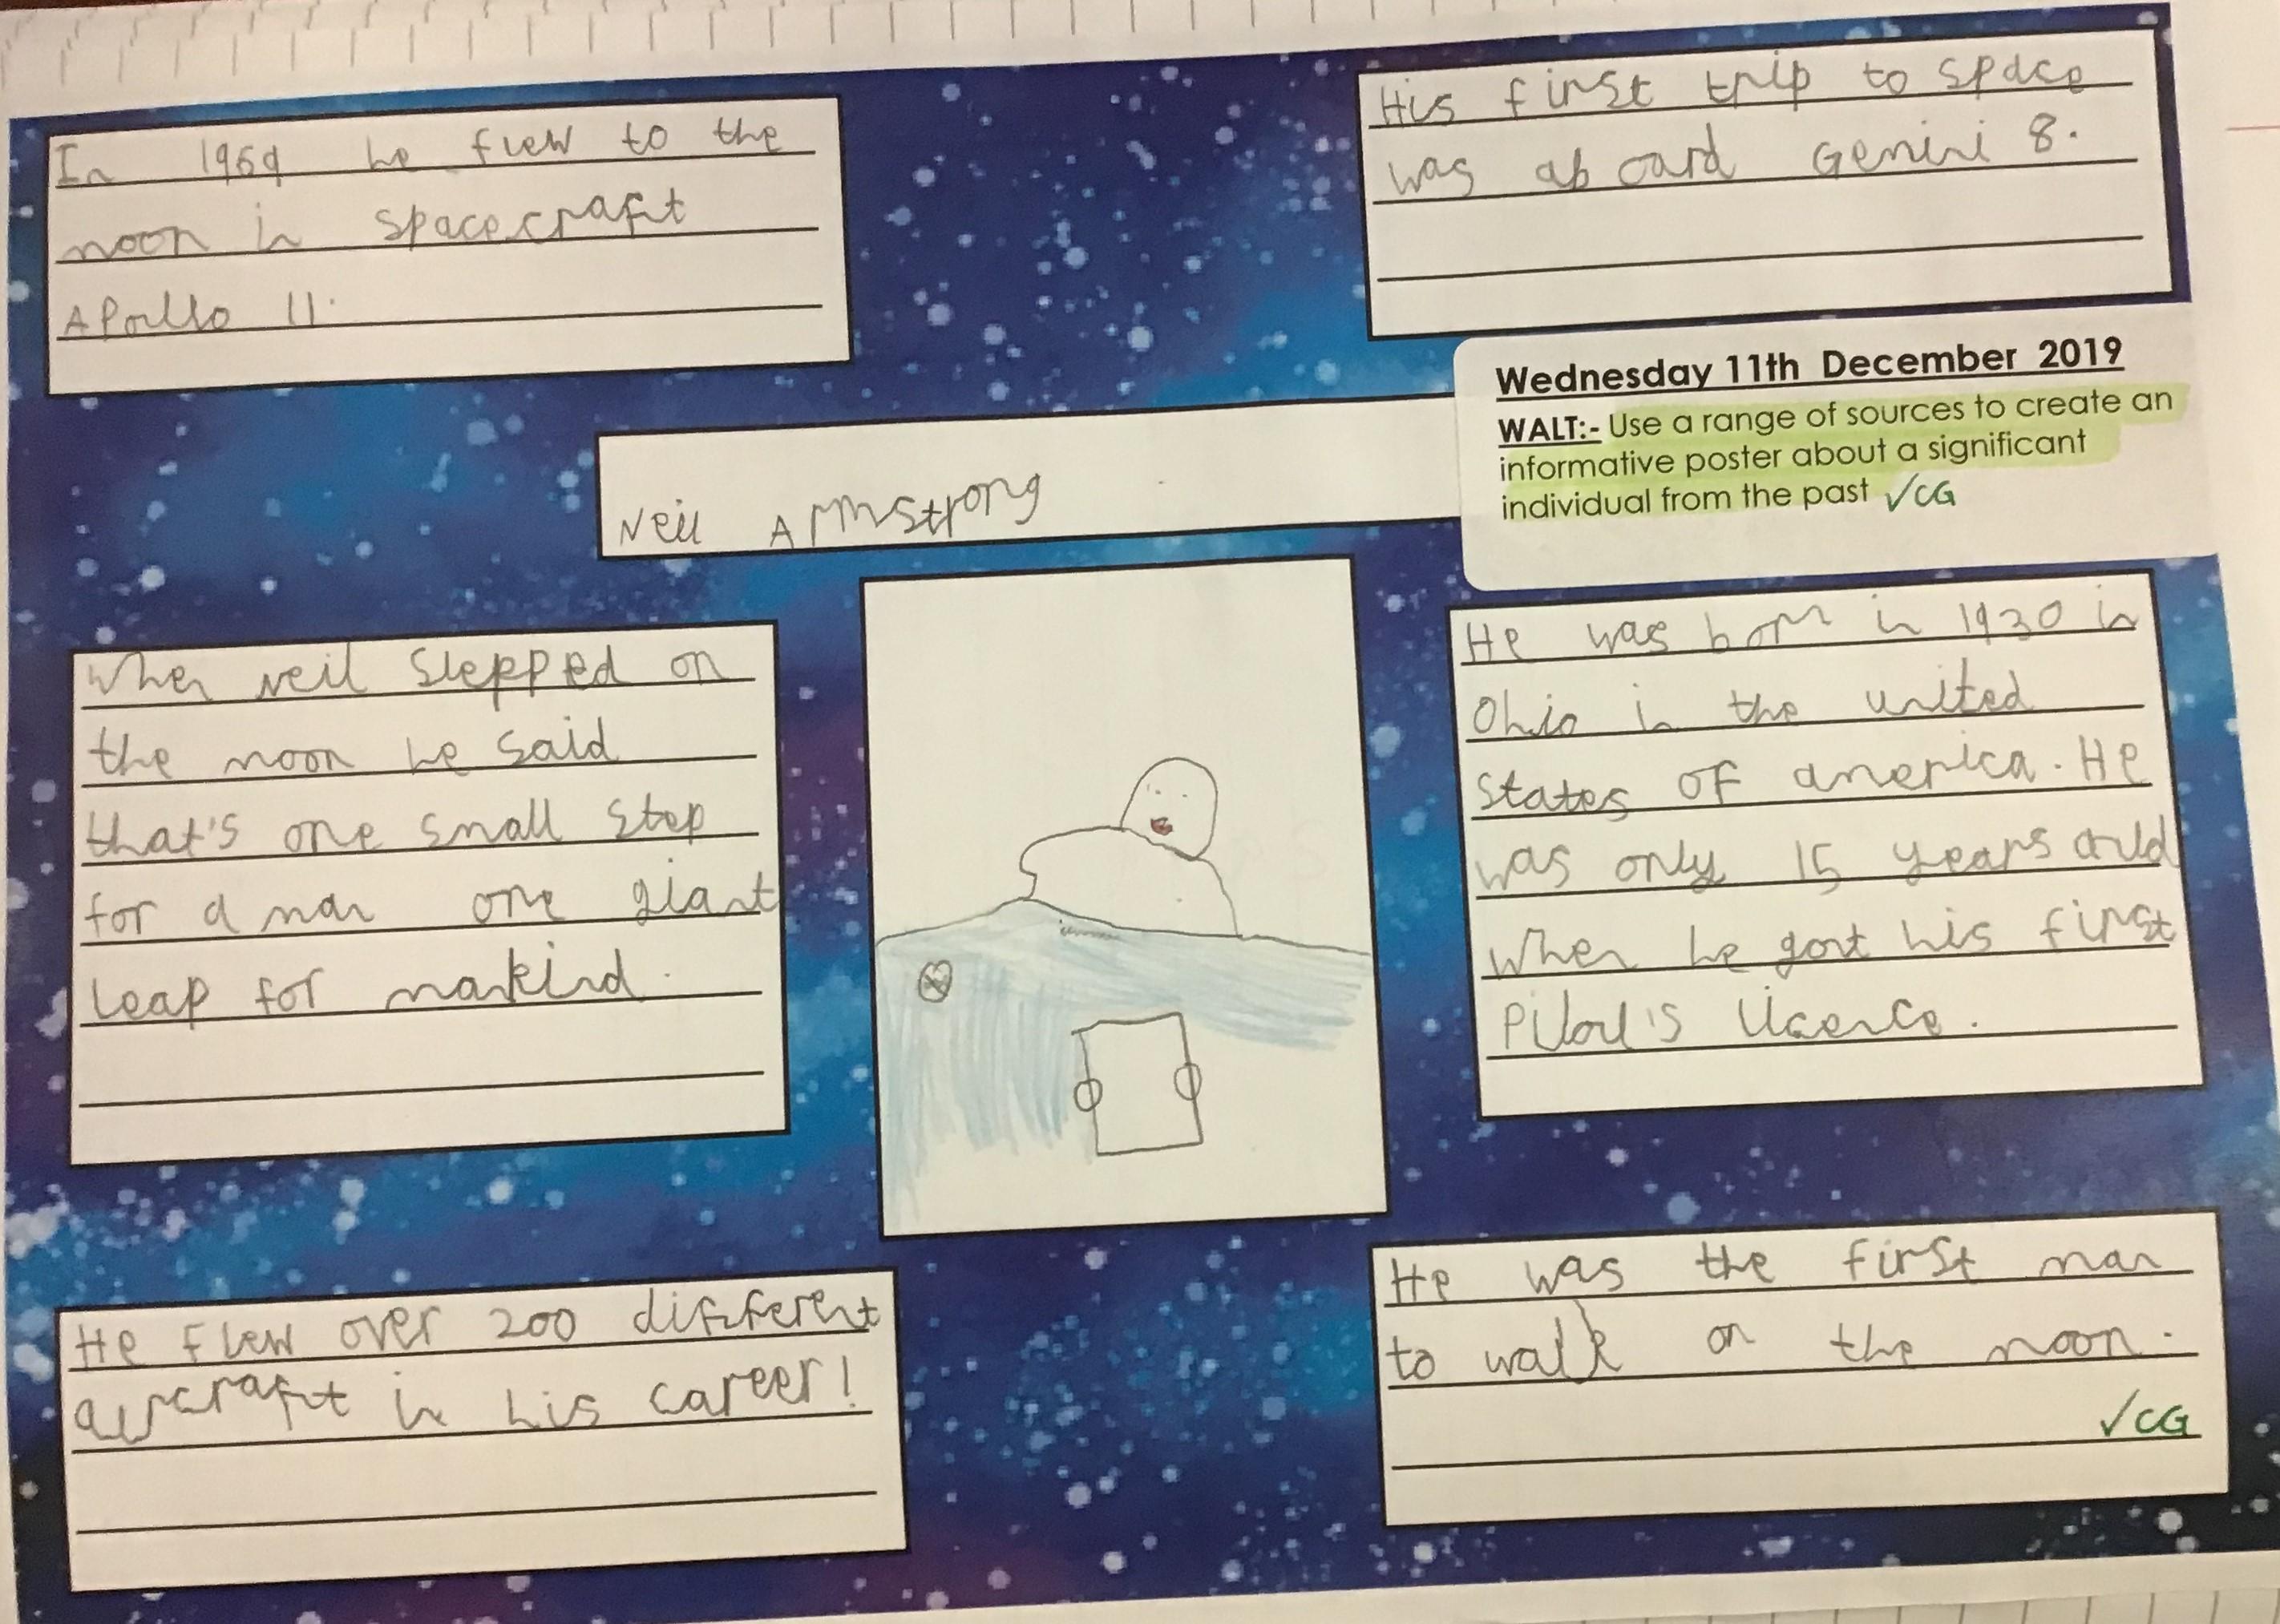 In 1969 he flew to the
moon in spacecraft
Apollo 11.
His first trip to space
was aboard Gemini 8.
Wednesday 11th December 2019
WALT:- Use a range of sources to create an
informative poster about a significant
individual from the past ✓CG
Neil Armstrong
When Neil stepped on
the moon he said
that's one small step
for a man one giant
leap for mankind.
He was born in 1930 in
Ohio in the united
states of america. He
was only 15 years
when he gort his first
Pilot's licence.
He flew over 200 different
aircraft in his career!
He was the first man
to walk on the moon.
✓CG